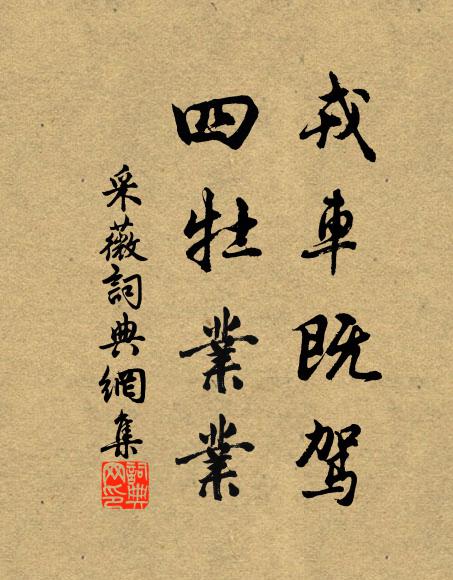 戎車既驾
四牡業業
采薇詞典網集
詞典
网印